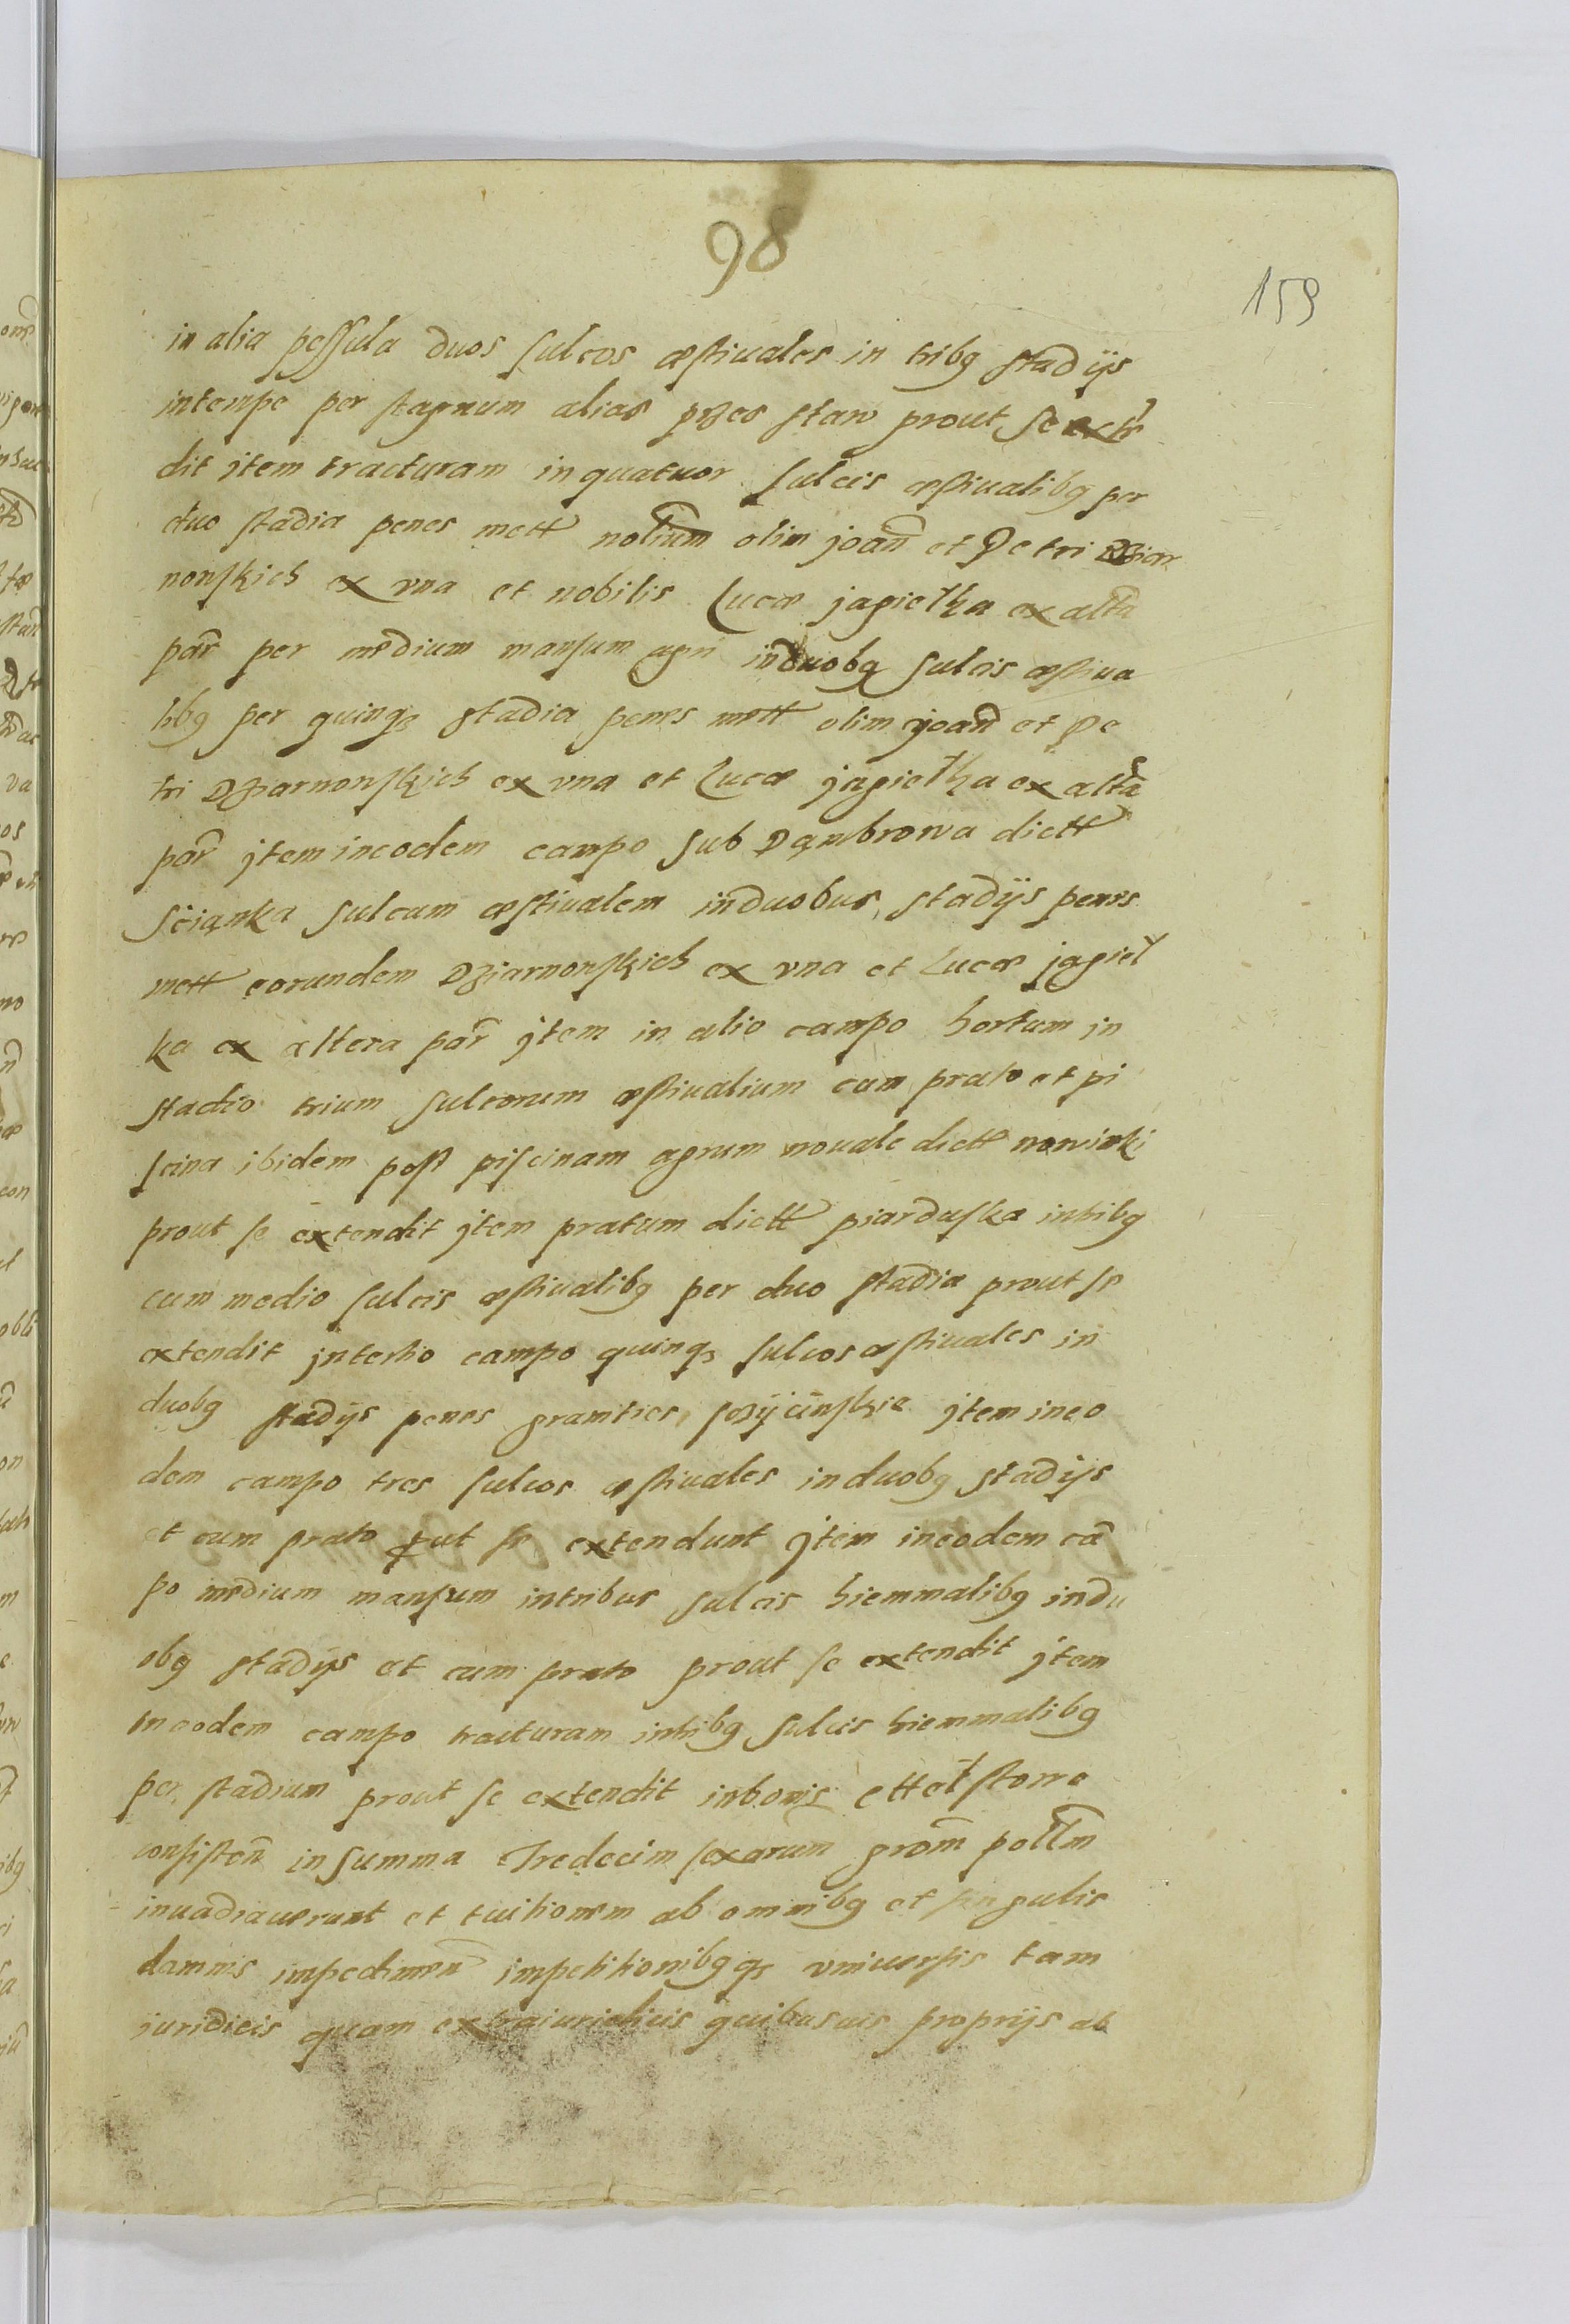 98
159
in alia peſſula duos ſulcos æſtiuales in tribq ſtadijs
intempe per ſtagnum alias przes ſtaw prout ſe exten
dit jtem tracturam in quatuor ſulcis æſtiualibq per
duo ſtadia penes mett nolium olim joan et Petri Dziar
nonſkich ex vna et nobilis Lucæ jagiełka ex altã
par per medium manſum agri in duobq ſulcis æſtiua
libq per quinqз ſtadia penes mett olim joan et Pe
tri Dziarnonſkich ex vna et Lucæ jagiełka ex altã
par jtem in eodem campo ſub Dąmbrowa dictt
Sciąnka ſulcum æſtiualem in duobus ſtadijs penes
mett eorundem Dziarnonſkich ex vna et Lucæ jagieł
ka ex altera par jtem in alio campo hortum in
ſtadio trium ſulcorum æſtiualium cum prato et pi
ſcina ibidem poſt piſcinam agrum nouale dictt nowinki
prout ſe extendit jtem pratum dictt piarduſka in tribq
cum medio ſulcis æſtiualibq per duo ſtadia prout ſe
extendit jn tertio campo quinqз ſulcos æſtiuales in
duobq ſtadijs penes granities jtem in eo
dem campo tres ſulcos æſtiuales in duobq ſtadijs
et cum prato ꝓut ſe extendunt jtem in eodem cã
po medium manſum in tribus ſulcis hiemmalibq in du
obq ſtadijs et cum prato prout ſe extendit jtem
in eodem campo tracturam in tribq ſulcis hiemmalibq
per ſtadium prout ſe extendit in bonis
conſiſten in ſumma Tredecim ſexarum grom połłm
inuadiauerunt et tuitionem ab omnibq et ſingulis
damnis impedimen impetitionibqqз vniuerſis tam
juridicis quam extrajuridicis quibusuis proprijs ab